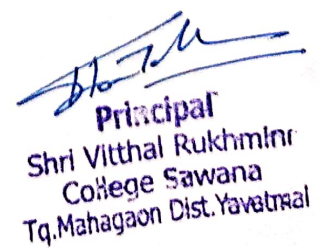 Principal
Shri Vitthal Rukhmini
College Sawana
Tq.Mahagaon Dist.Yavatmal